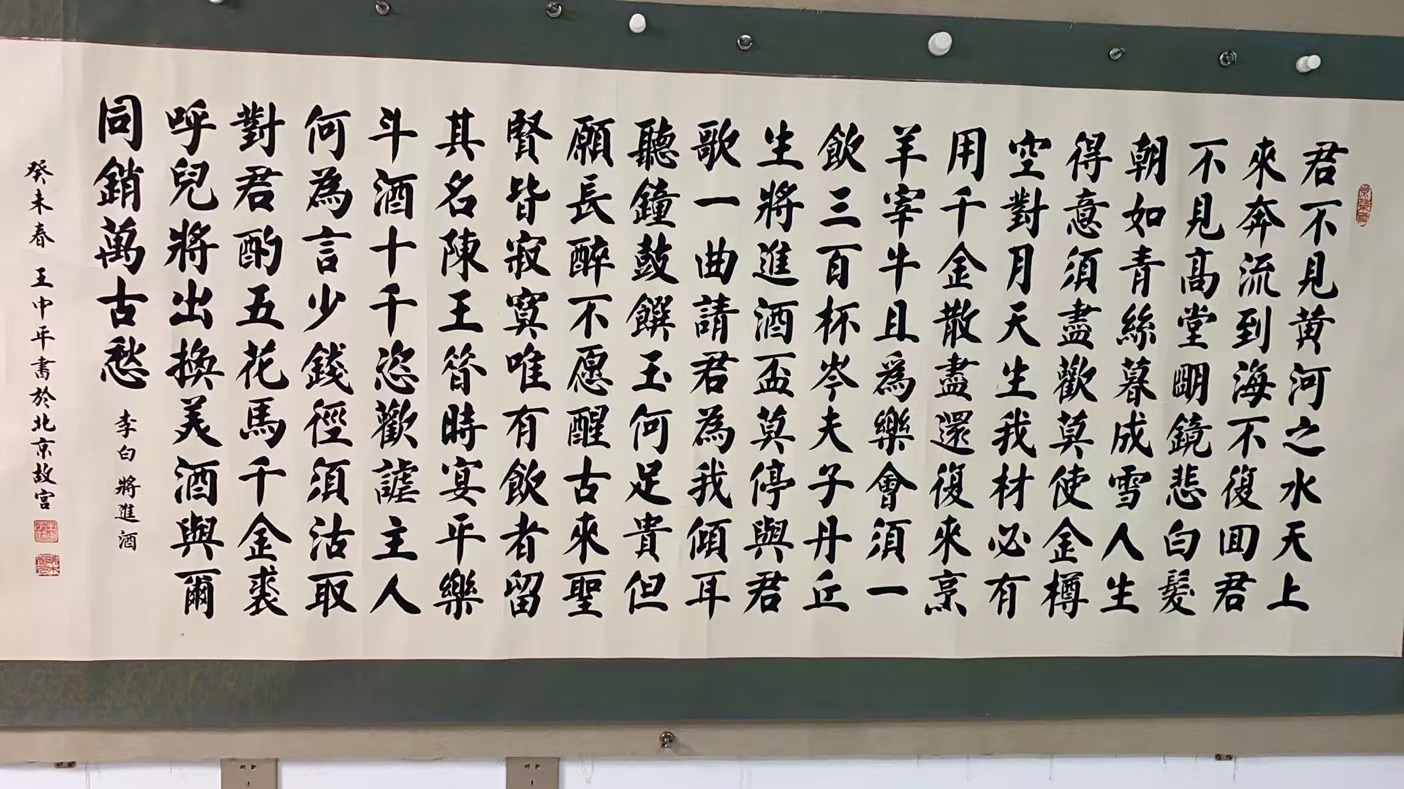 君不見黄河之水天上
來奔流到海不復回君
不見高堂明鏡悲白髮
朝如青絲暮成雪人生
得意須盡歡莫使金樽
空對月天生我材必有
用千金散盡還復來烹
羊宰牛且爲樂會須一
飲三百杯岑夫子丹丘
生將進酒盃莫停與君
歌一曲請君為我傾耳
聽鐘鼓饌玉何足貴但
願長醉不愿醒古來聖
賢皆寂寞唯有飲者留
其名陳王昝時宴平樂
斗酒十千恣歡謔主人
何為言少錢徑須沽取
對君酌五花馬千金裘
呼兒將出換美酒與爾
同銷萬古愁
李白將進酒
癸未春 王中平書於北京故宫